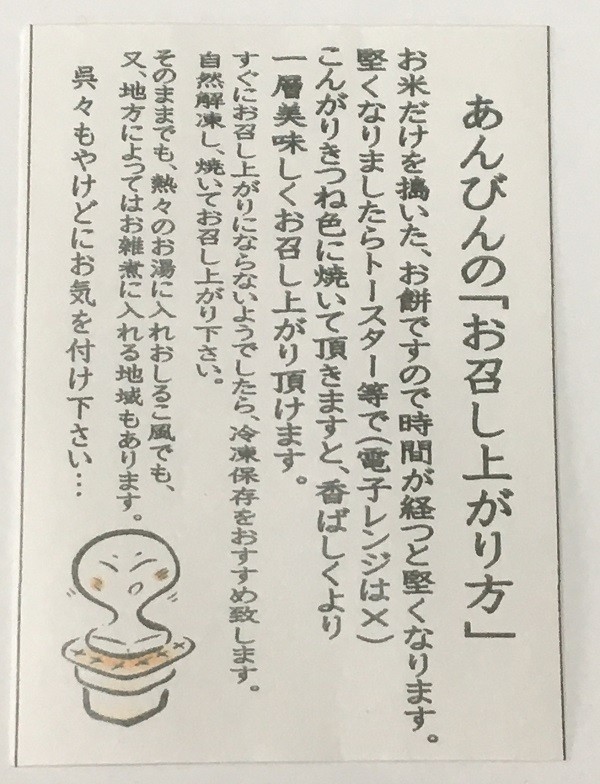 あんびんの「お召し上がり方」
お米だけを搗いた、お餅ですので時間が経つと堅くなります。
堅くなりましたらトースター等で(電子レンジは×)
こんがりきつね色に焼いて頂きますと、香ばしくより
一層美味しくお召し上がり頂けます。
すぐにお召し上がりにならないようでしたら、冷凍保存をおすすめ致します。
自然解凍し、焼いてお召し上がり下さい。
そのままでも、熱々のお湯に入れおしるこ風でも、
又、地方によってはお雑煮に入れる地域もあります。
呉々もやけどにお気を付け下さい…